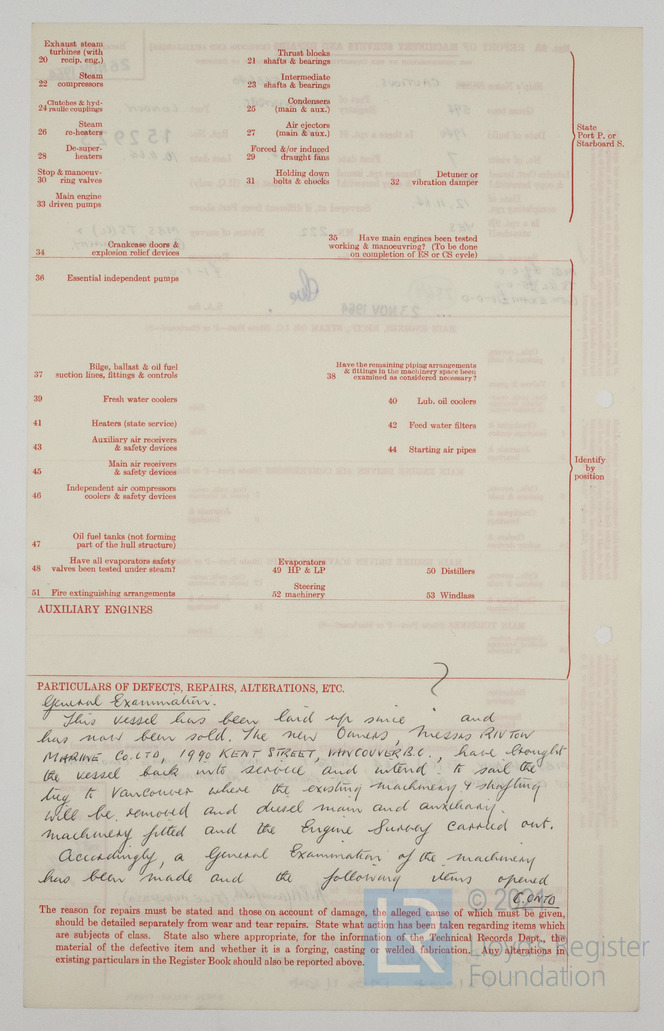 Exhaust steam
turbines (with
20 recip. eng.)
Thrust blocks
21 shafts & bearings
Steam
22 compressors
Intermediate
23 shafts & bearings
Clutches & hyd-
24 raulic couplings
Condensers
25 (main & aux.)
Steam
26 re-heaters
Air ejectors
27 (main & aux.)
De-super-
28 heaters
Forced &/or induced
29 draught fans
Stop & manoeuv-
30 ring valves
Holding down
31 bolts & chocks
Detuner or
32 vibration damper
Main engine
33 driven pumps
State
Port P. or
Starboard S.
Crankcase doors &
34 explosion relief devices
35 Have main engines been tested
working & manoeuvring? (To be done
on completion of ES or CS cycle)
36 Essential independent pumps
Bilge, ballast & oil fuel
37 suction lines, fittings & controls
Have the remaining piping arrangements
& fittings in the machinery space been
38 examined as considered necessary?
39 Fresh water coolers
40 Lub. oil coolers
41 Heaters (state service)
42 Feed water filters
Auxiliary air receivers
43 & safety devices
44 Starting air pipes
Main air receivers
45 & safety devices
Identify
by
position
Independent air compressors
46 coolers & safety devices
Oil fuel tanks (not forming
47 part of the hull structure)
Have all evaporators safety
48 valves been tested under steam?
Evaporators
49 HP & LP
50 Distillers
51 Fire extinguishing arrangements
Steering
52 machinery
53 Windlass
AUXILIARY ENGINES
?
PARTICULARS OF DEFECTS, REPAIRS, ALTERATIONS, ETC.
General Examination.
This vessel has been laid up since and
has now been sold. The new Owners, Messrs RIVTOW
MARINE CO. LTD, 1990 KENT STREET, VANCOUVER B.C., have brought
the vessel back into service and intend to sail the
tug to Vancouver where the existing machinery & shafting
will be removed and diesel main and auxiliary
machinery fitted and the Engine Survey carried out.
Accordingly, a General Examination of the machinery
has been made and the following items opened
CONTD
The reason for repairs must be stated and those on account of damage, the alleged cause of which must be given,
should be detailed separately from wear and tear repairs. State what action has been taken regarding items which
are subjects of class. State also where appropriate, for the information of the Technical Records Dept., the
material of the defective item and whether it is a forging, casting or welded fabrication. Any alterations in
existing particulars in the Register Book should also be reported above.
© 2021
LR
Lloyd's Register
Foundation